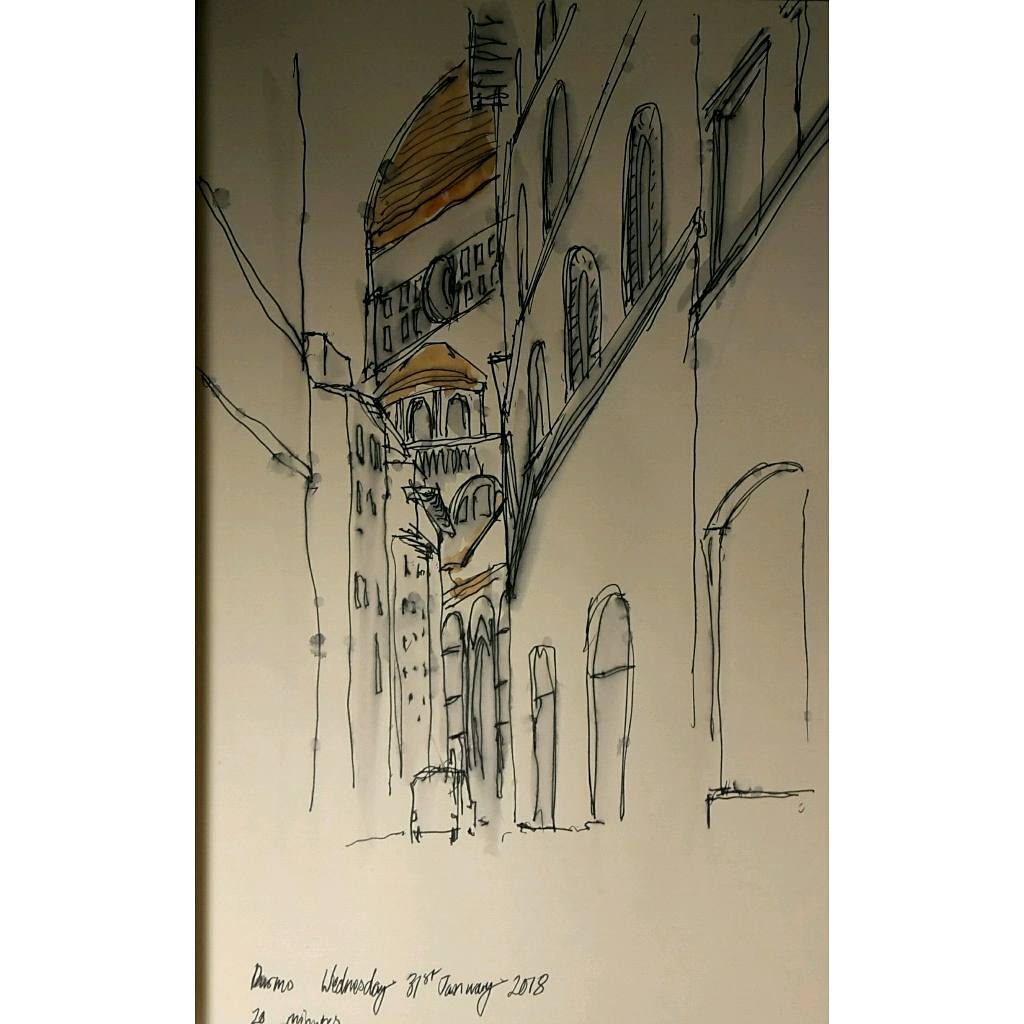 Duomo Wednesday 31st January 2018
20 minutes